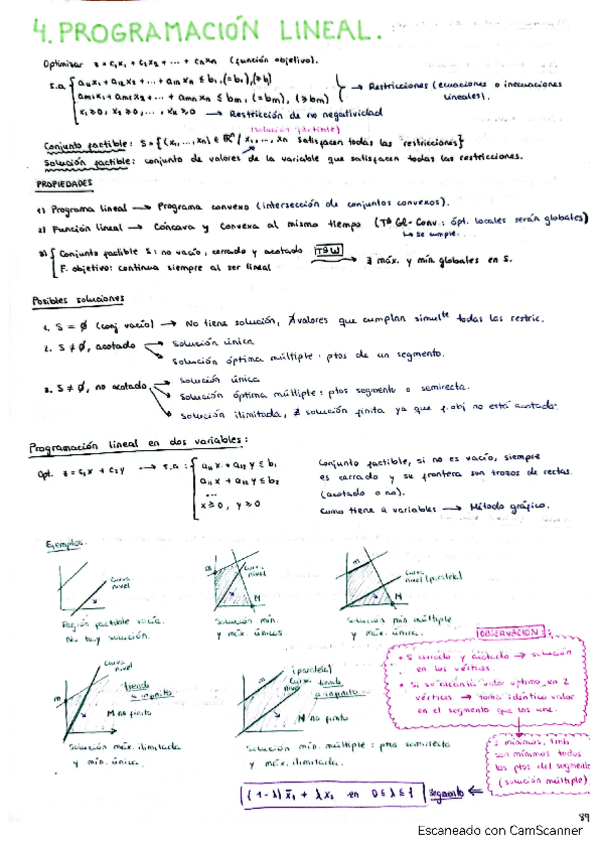 4. PROGRAMACIÓN LINEAL.
Optimizar z = c₁x₁ + c₂x₂ + ... + cₙxₙ (función objetivo).
s.a. { a₁₁x₁ + a₁₂x₂ + ... + a₁ₙxₙ ≤ b₁, (= b₁), (≥ b₁)
am₁x₁ + am₂x₂ + ... + amₙxₙ ≤ bm, (= bm), (≥ bm)
→ Restricciones (ecuaciones o inecuaciones lineales).
x₁ ≥ 0, x₂ ≥ 0, ..., xₙ ≥ 0 → Restricción de no negatividad
(solución factible)
Conjunto factible: S = { (x₁, ..., xₙ) ∈ ℝⁿ / x₁, ..., xₙ satisfacen todas las restricciones}
Solución factible: conjunto de valores de la variable que satisfacen todas las restricciones.
PROPIEDADES
1) Programa lineal → Programa convexo (intersección de conjuntos convexos).
2) Función lineal → Cóncava y Convexa al mismo tiempo (Tª Gl-Conv: ópt. locales serán globales)
↳ se cumple.
3) { Conjunto factible S: no vacío, cerrado y acotado
F. objetivo: continua siempre al ser lineal
TªW → ∃ máx. y mín. globales en S.
Posibles soluciones
1. S = ∅ (conj vacío) → No tiene solución, ∄ valores que cumplan simulᵗᵉ todas las restric.
2. S ≠ ∅, acotado → Solución única
→ Solución óptima múltiple: ptos de un segmento.
3. S ≠ ∅, no acotado → Solución única
→ Solución óptima múltiple: ptos segmento o semirecta.
→ Solución ilimitada, ∄ solución finita ya que f.obj no está acotada.
Programación lineal en dos variables:
Opt. z = c₁x + c₂y → s.a: { a₁₁x + a₁₂y ≤ b₁
a₂₁x + a₂₂y ≤ b₂
...
x ≥ 0, y ≥ 0
Conjunto factible, si no es vacío, siempre
es cerrado y su frontera son trozos de rectas.
(acotado o no).
Como tiene 2 variables → Método gráfico.
Ejemplos.
curva nivel
Región factible vacía.
No hay solución.
m
curva nivel
M
Solución mín.
y máx. únicos
m
curva nivel (paralela)
M
Solución mín múltiple
y máx. única.
OBSERVACIÓN:
• S cerrado y acotado → solución
en los vértices.
• Si se alcanza valor óptimo en 2
vértices → toma idéntico valor
en el segmento que los une.
m
curva nivel
tiende a infinito
M no finito
Solución máx. ilimitada
y mín. única.
m
(paralela)
curva nivel
tiende a infinito
M no finito
Solución mín. múltiple: ptos semirecta
y máx. ilimitada.
2 mínimos, tmb
son mínimos todos
los ptos del segmento
(solución múltiple)
{ (1-λ) x̄₁ + λ x̄₂ en 0 ≤ λ ≤ 1 } segmento ⇐
89
Escaneado con CamScanner